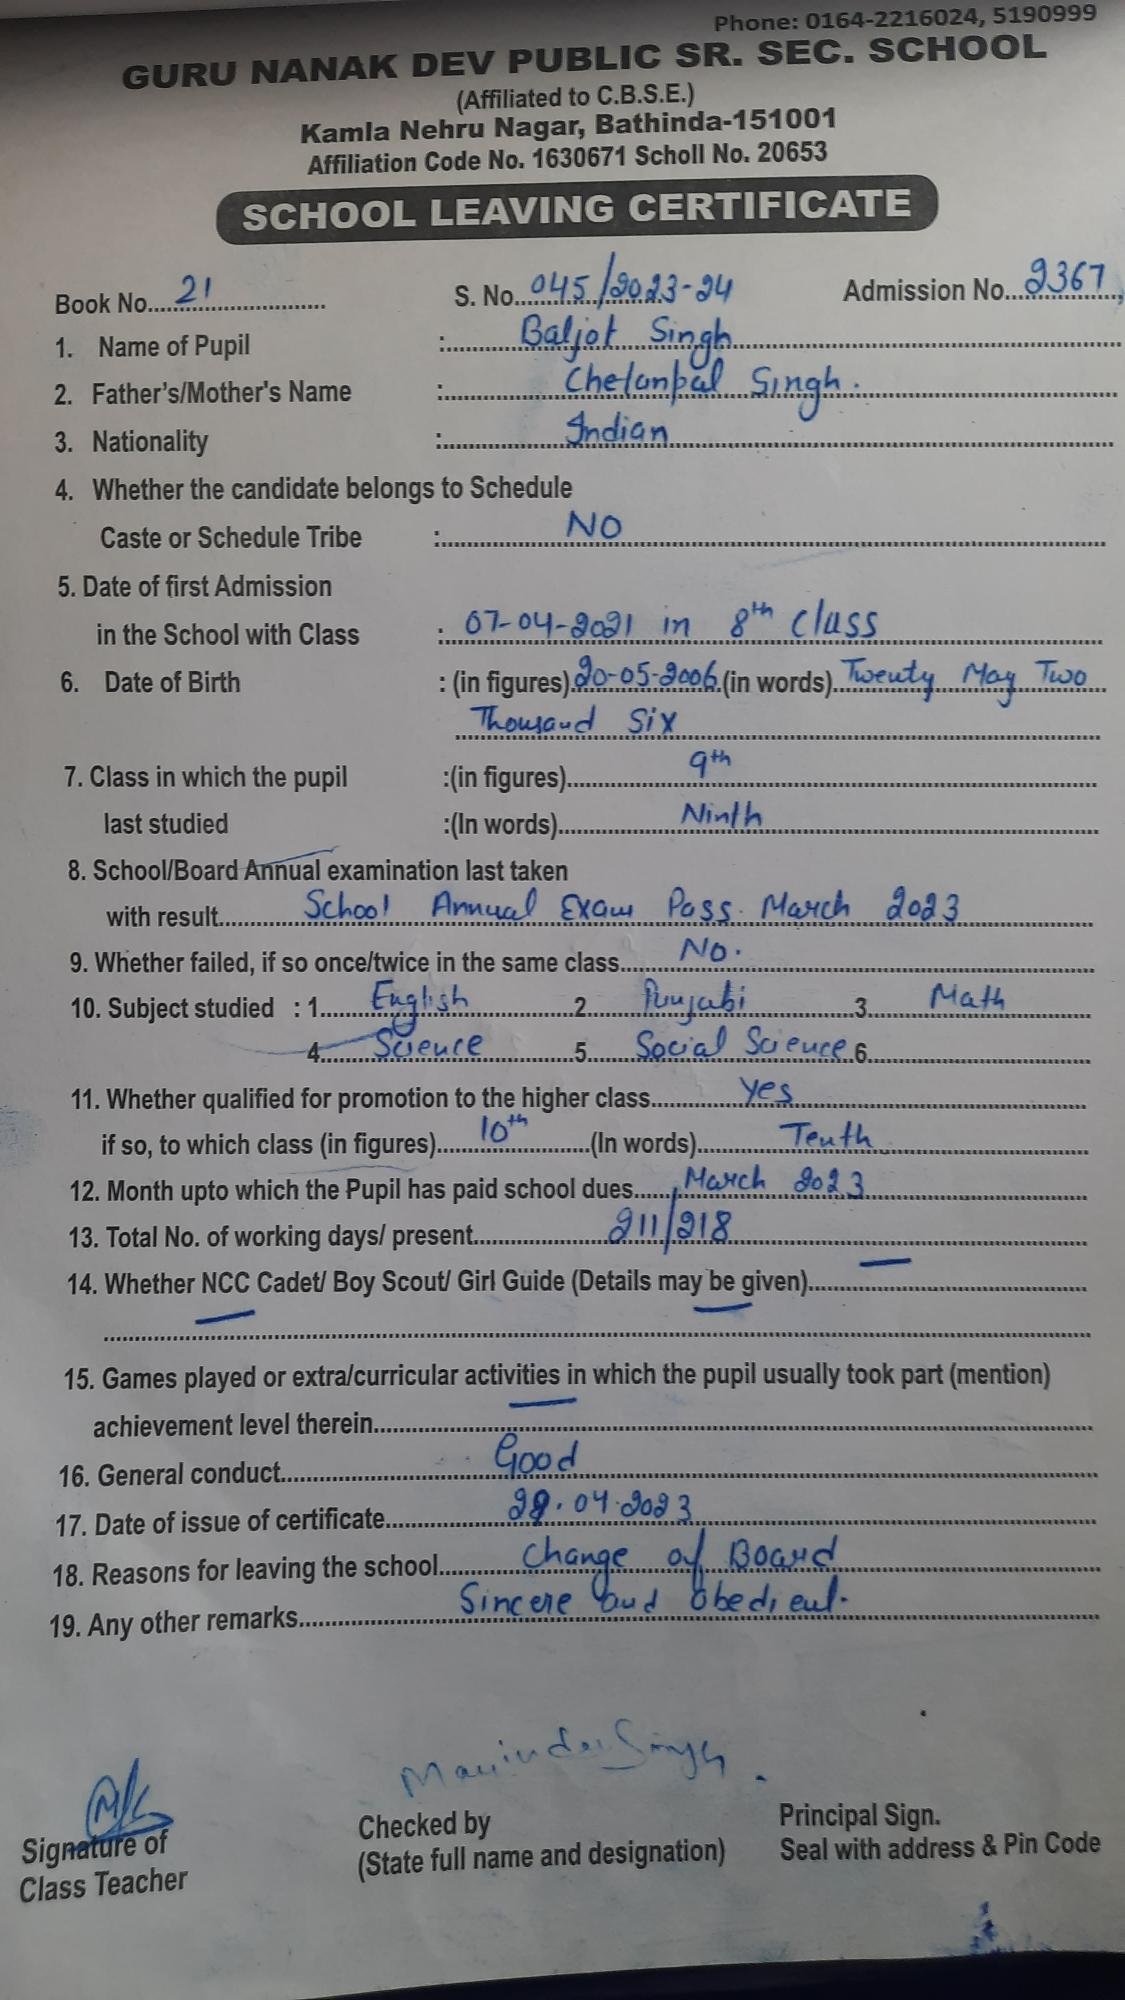 Phone: 0164-2216024, 5190999
GURU NANAK DEV PUBLIC SR. SEC. SCHOOL
(Affiliated to C.B.S.E.)
Kamla Nehru Nagar, Bathinda-151001
Affiliation Code No. 1630671 Scholl No. 20653
SCHOOL LEAVING CERTIFICATE
Book No. 21 S. No. 045/2023-24 Admission No. 2367
1. Name of Pupil : Baljot Singh
2. Father's/Mother's Name : Chetanpal Singh.
3. Nationality : Indian
4. Whether the candidate belongs to Schedule
Caste or Schedule Tribe : NO
5. Date of first Admission
in the School with Class : 07-04-2021 in 8th class
6. Date of Birth : (in figures) 20-05-2006 (in words) Twenty May Two
Thousand Six
7. Class in which the pupil :(in figures) 9th
last studied :(In words) Ninth
8. School/Board Annual examination last taken
with result School Annual Exam Pass. March 2023
9. Whether failed, if so once/twice in the same class No.
10. Subject studied : 1. English 2 Punjabi 3. Math
4. Science 5. Social Science 6.
11. Whether qualified for promotion to the higher class yes
if so, to which class (in figures) 10th (In words) Tenth
12. Month upto which the Pupil has paid school dues March 2023
13. Total No. of working days/ present 211/218
14. Whether NCC Cadet/ Boy Scout/ Girl Guide (Details may be given)
15. Games played or extra/curricular activities in which the pupil usually took part (mention)
achievement level therein
16. General conduct Good
17. Date of issue of certificate 04.2023
18. Reasons for leaving the school Change of Board
19. Any other remarks Sincere and obedient.
Maninder Singh.
Signature of Checked by Principal Sign.
Class Teacher (State full name and designation) Seal with address & Pin Code